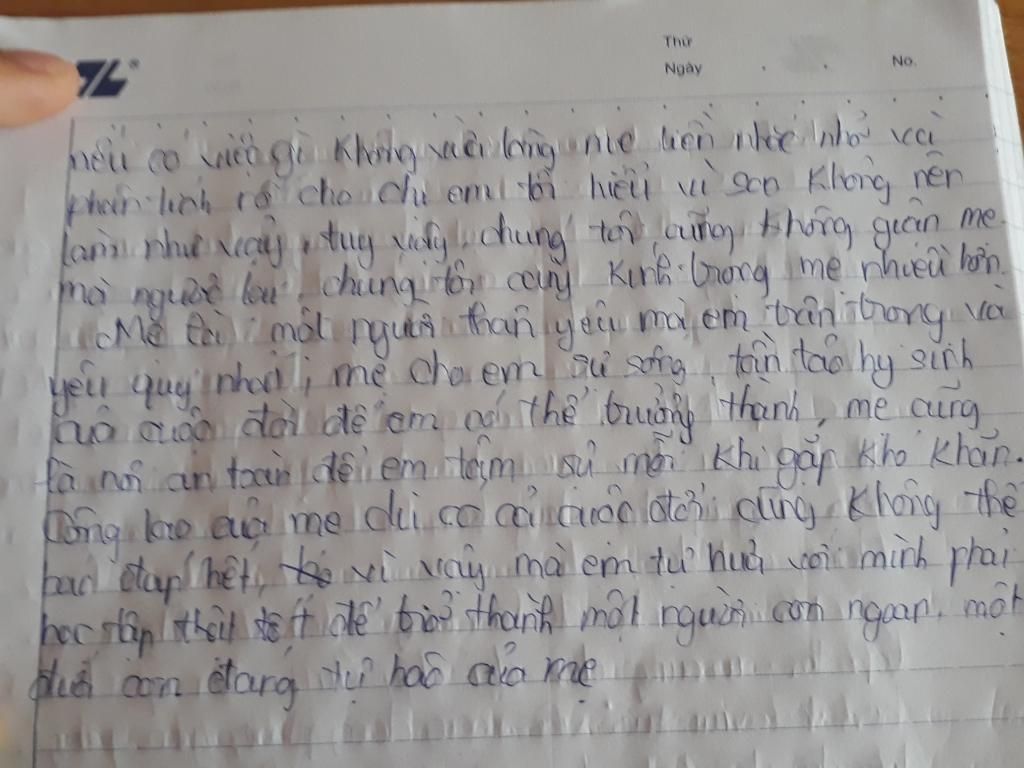 Thứ
Ngày . . No.
nếu có việc gì không vừa lòng mẹ liền nhắc nhở và
phân tích rõ cho chị em tôi hiểu vì sao không nên
làm như vậy, tuy vậy, chúng tôi cũng không giận mẹ
mà người lại, chúng tôi càng kính trọng mẹ nhiều hơn.
Mẹ là một người thân yêu mà em trân trọng và
yêu quý nhất, mẹ cho em sự sống, tần tảo hy sinh
cả cuộc đời để em có thể trưởng thành, mẹ cũng
là nơi an toàn để em tâm sự mỗi khi gặp khó khăn.
Công lao của mẹ dù có cả cuộc đời cũng không thể
báo đáp hết, vì vậy mà em tự hứa với mình phải
học tập thật tốt để trở thành một người con ngoan, một
đứa con đáng tự hào của mẹ